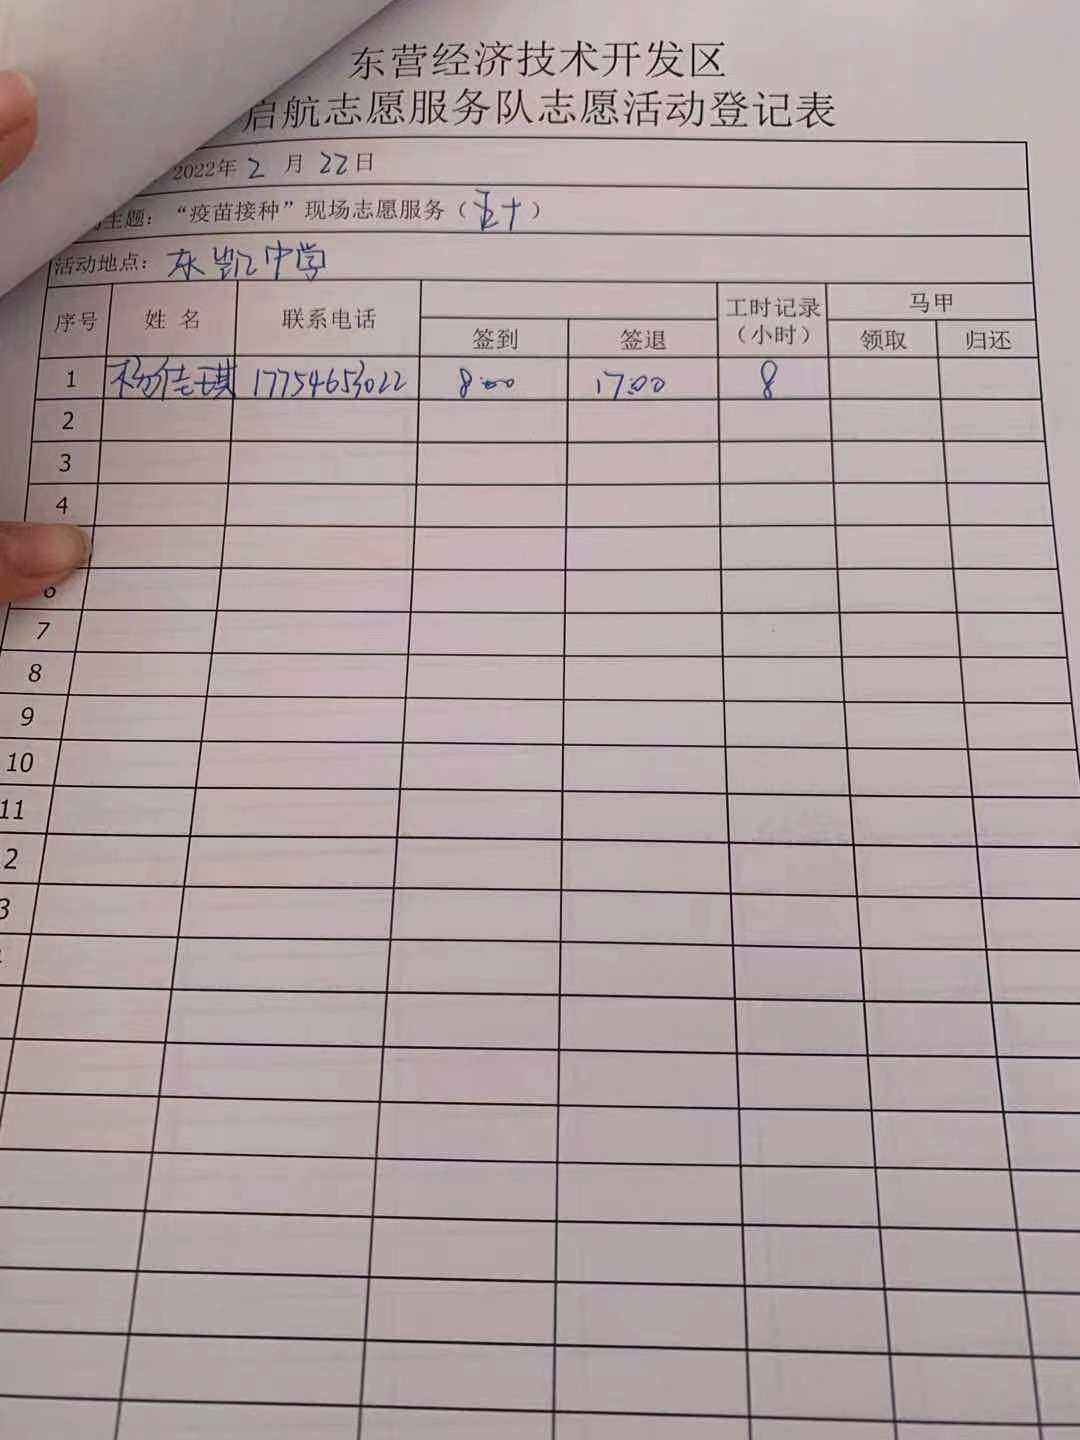 东营经济技术开发区
启航志愿服务队志愿活动登记表
2022年2月22日
主题：“疫苗接种”现场志愿服务（五十）
活动地点：东凯中学
序号 姓名 联系电话 签到 签退 工时记录（小时） 马甲 领取 归还
1 杨佳琪 17754653022 8:00 17:00 8
2
3
4
6
7
8
9
10
11
2
3